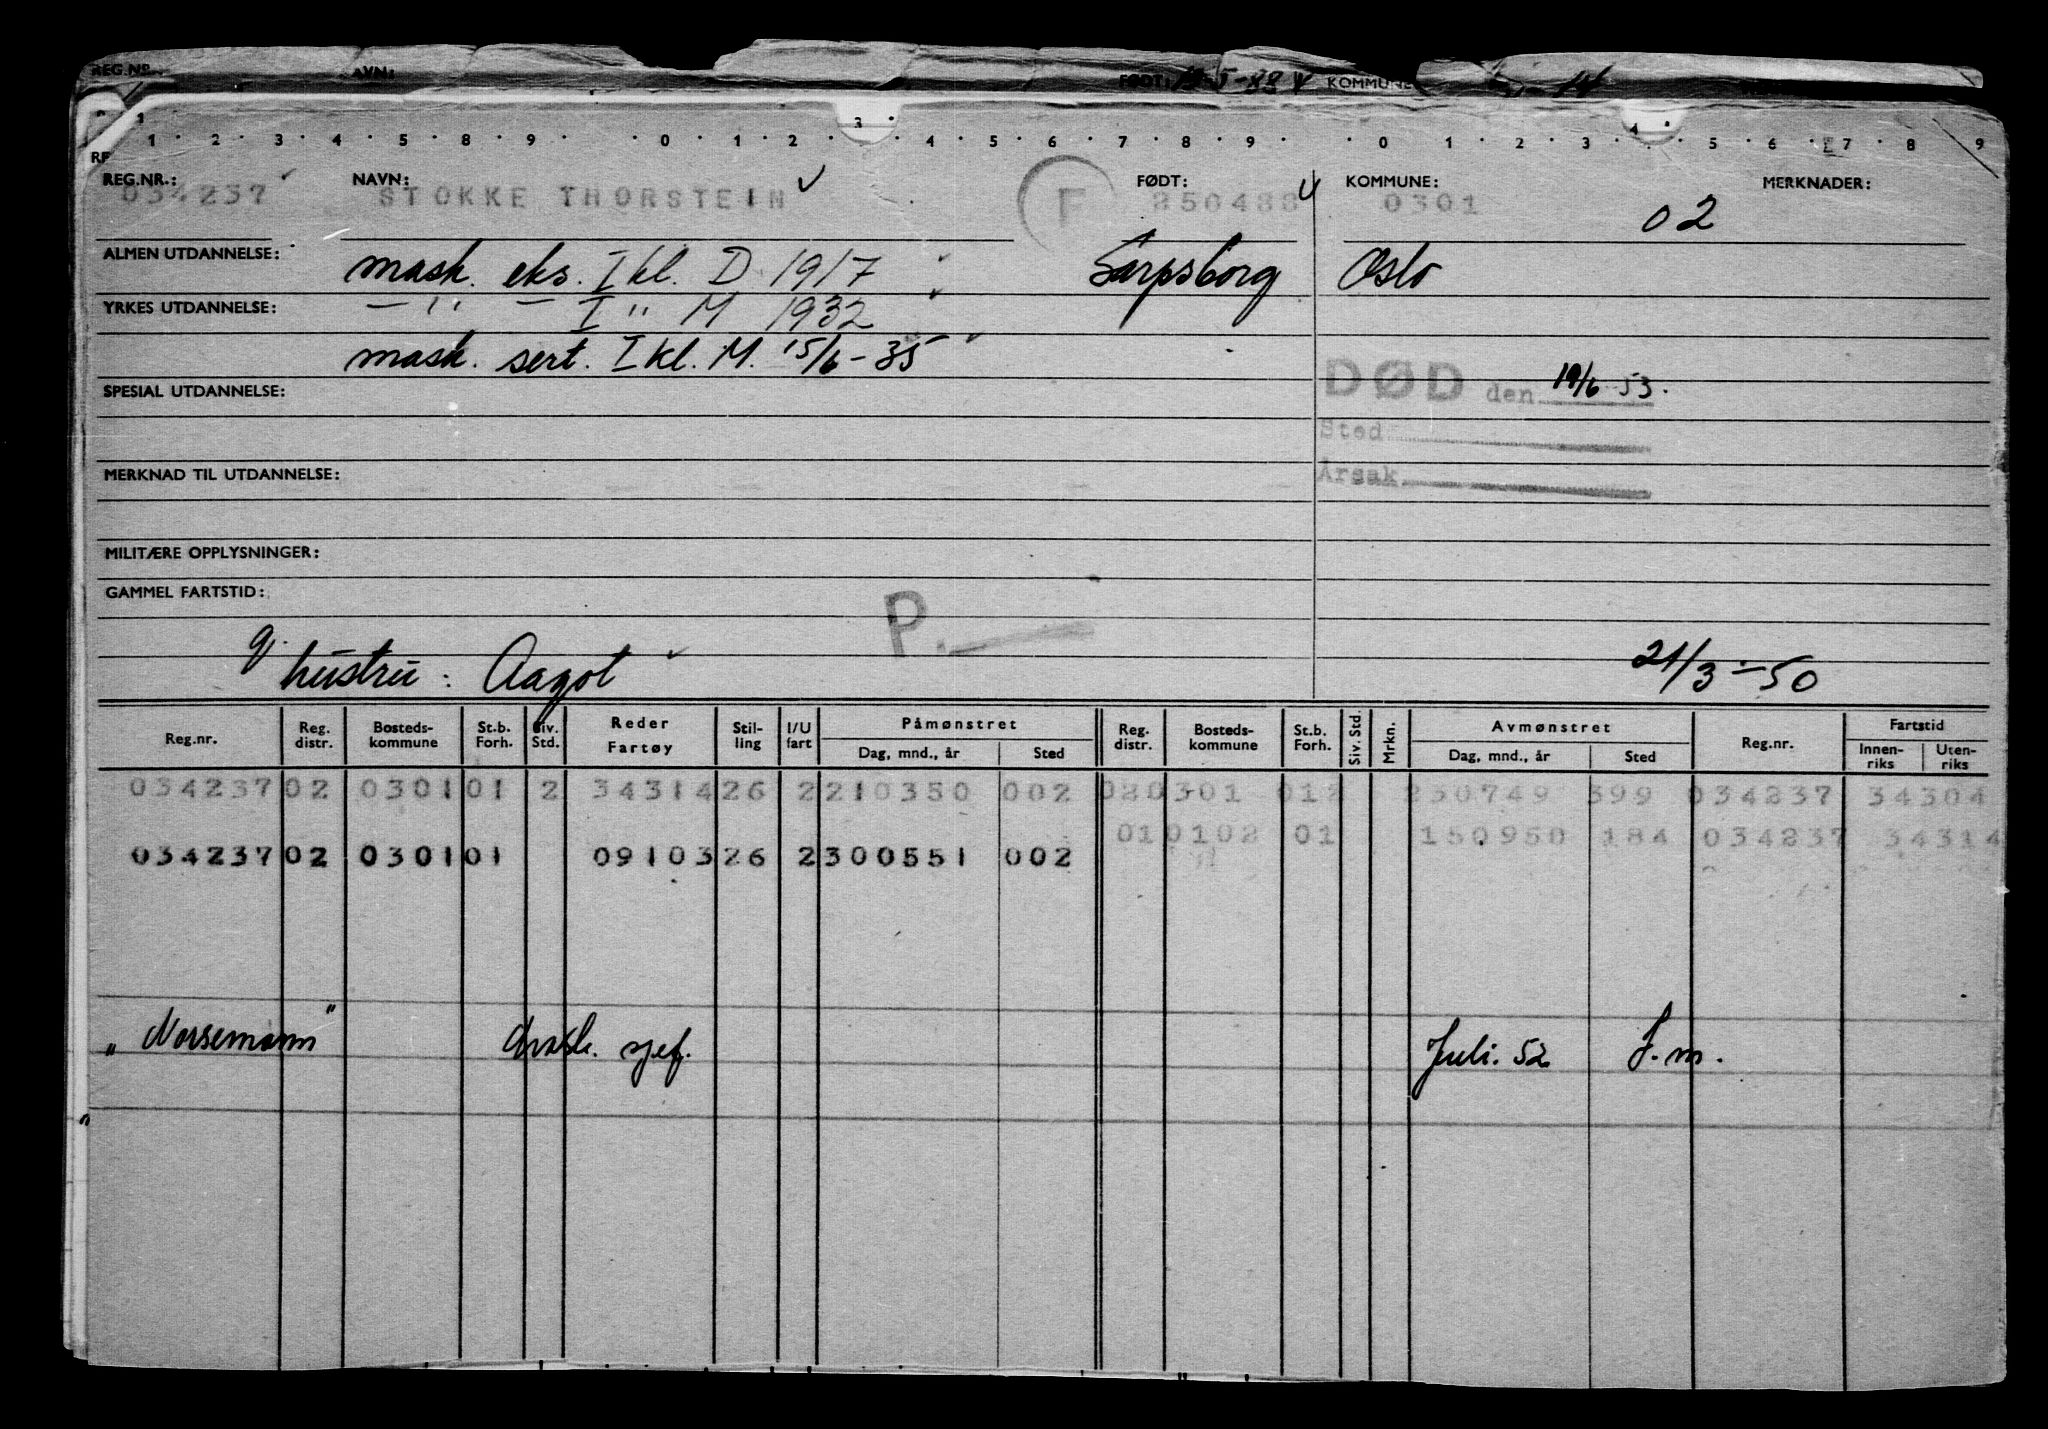 REG.NR. NAVN: FØDT: 5-88 KOMMUNE
1 2 3 4 5 8 9 0 1 2 3 4 5 6 7 8 9 0 1 2 3 4 5 6 7 8 9
REG.NR.: NAVN: FØDT: KOMMUNE: MERKNADER:
034237 STOKKE THORSTEIN F 250488 0301 02
ALMEN UTDANNELSE: mask. eks. I kl. D 1917 Sarpsborg Oslo
YRKES UTDANNELSE: — " — I " M 1932
mask. sert. I kl. M. 15/6-35
DØD den 19/6 53.
SPESIAL UTDANNELSE:
Sted
MERKNAD TIL UTDANNELSE:
Årsak
MILITÆRE OPPLYSNINGER:
GAMMEL FARTSTID:
P.
g. hustru: Aagot 21/3-50
Reg.nr. Reg. distr. Bosteds-kommune St.b. Forh. Siv. Std. Reder Fartøy Stil-ling I/U fart Påmønstret Dag, mnd., år Sted Reg. distr. Bosteds-kommune St.b. Forh. Siv. Std. Mrkn. Avmønstret Dag, mnd., år Sted Reg.nr. Fartstid Innen-riks Uten-riks
034237 02 0301 01 2 34314 26 2 210350 002 02 0301 012 230749 399 034237 34304
01 0102 01 150950 184 034237 34314
034237 02 0301 01 09103 26 2 300551 002
"Norsemann" mask. sjef. Juli. 52 f.m.